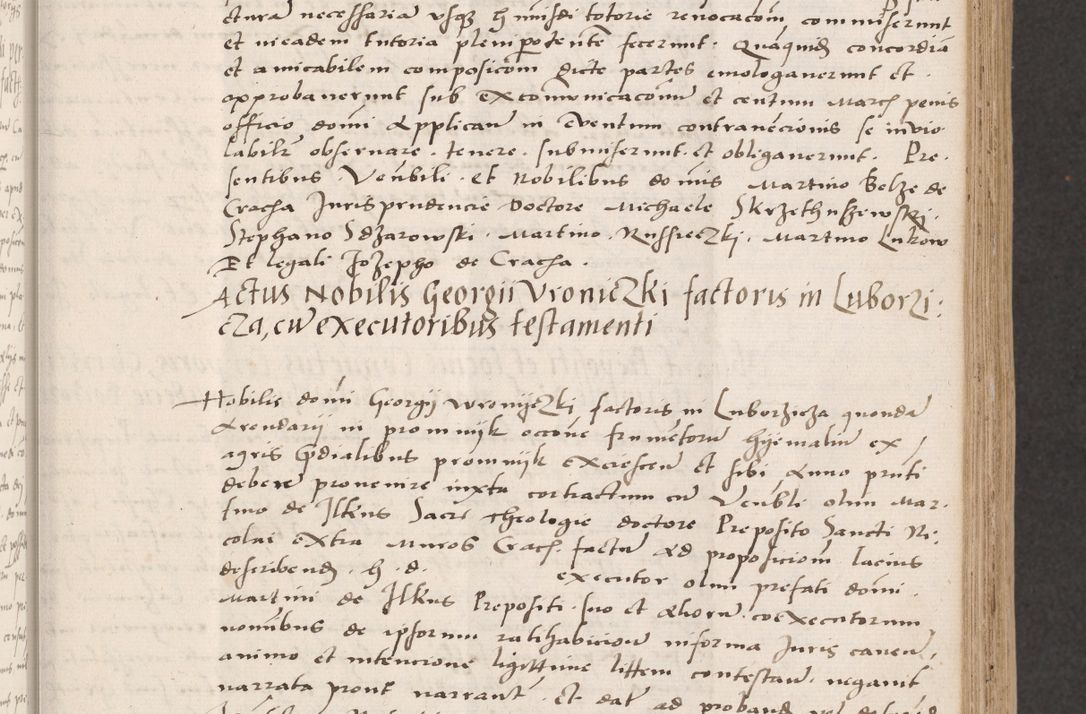 ctura necessaria vsqz h mĩusdi totorie revocacom, commiserunt
et in eadem tutoria plenipotente fecerunt. Quaquid concordia
et amicabilem composicom dicte partes emologaverunt et
approbaverunt sub excomunicacionis et centum March penis
officio domi Applican in Eventum contravecionis se invio
labilr observare. tenere. submiserunt. et obligaverunt. Pre.
sentibus Venbili. et Nobilibus domis Martino Belze de
Cracha Jurisprudencie Doctore Michaele Skrzethuszewski.
Stephano Sdzarowski. Martino. Russieczki. Martino Lukow
Et legali Jozepho de Cracha.
Actus Nobilis Georgii Vroniczki factoris in Luborzi:
cza, cu executoribus testamenti
Nobilis domi Georgij Wronijczki factoris in Luborzicza quonda
Arendarij in promnijk occone frumentoru hyemaliu ex
agris predialibus promnijk excrescen et sibi Anno pnti
debere provenire iuxta contractum cu Venbli olim Mar.
tino de Ilkus Sacre Theologie doctore Preposito Sancti Ni.
colai extra muros Crach factu Ad proposiciom lacius
describend. h. d. executor olim prefati domi.
Martini de Ilkus Prepositi. suo et Alioru coexecutorum
nomibus de ipsorum ratihabiciou in forma Juris caven,
animo et intencione ligittime littem contestan. negavit
narrata prout narrant. Et dat ad proband